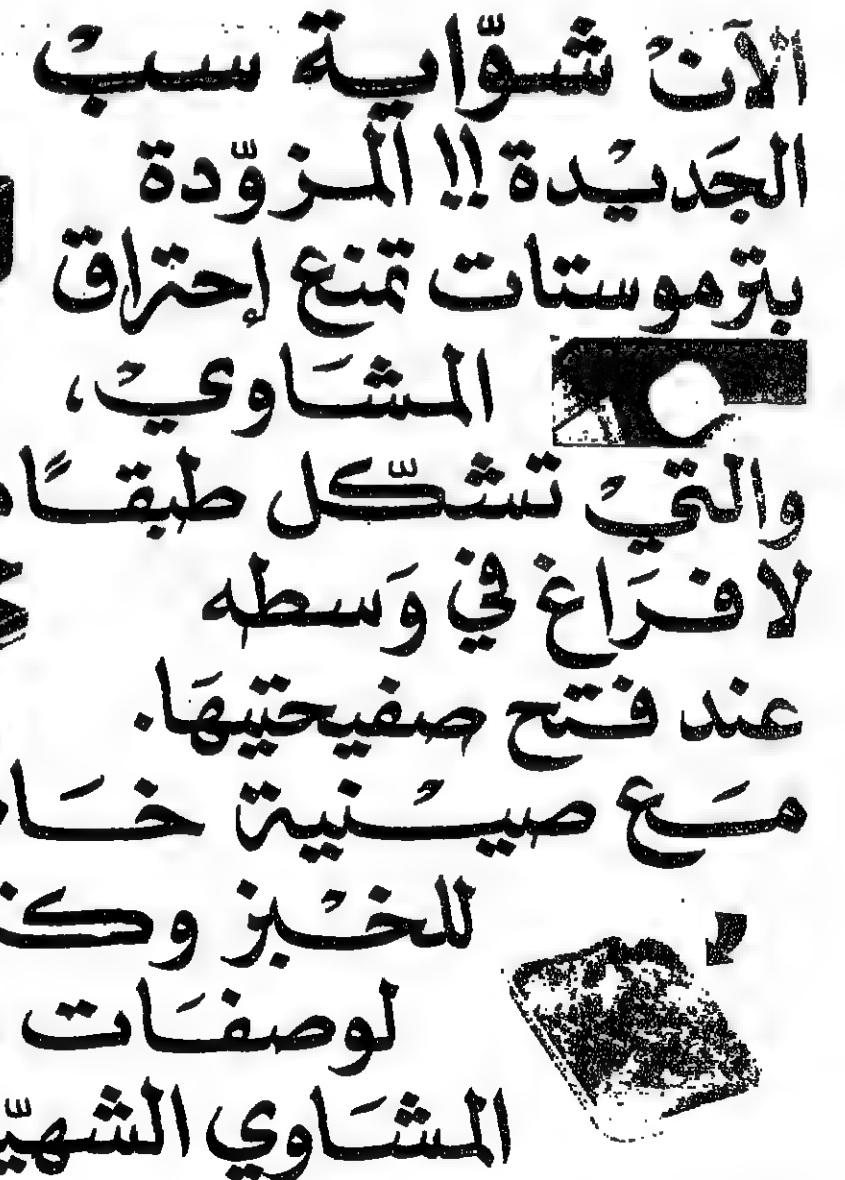 الآنْ شوّاية سبْ
الجَديْدة !! المزوّدة
بترموستات تمنع إحتراق
المشَاويْ،
والتيْ تشكّل طبقًا
لا فرَاغ في وَسطه
عند فتح صفيحتيهَا.
مَع صيْنية
للخبْز
لوصفَات
المشَاوي